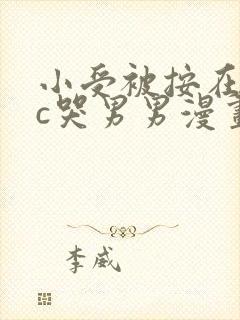 小受被按在
c哭男男漫畫
李威